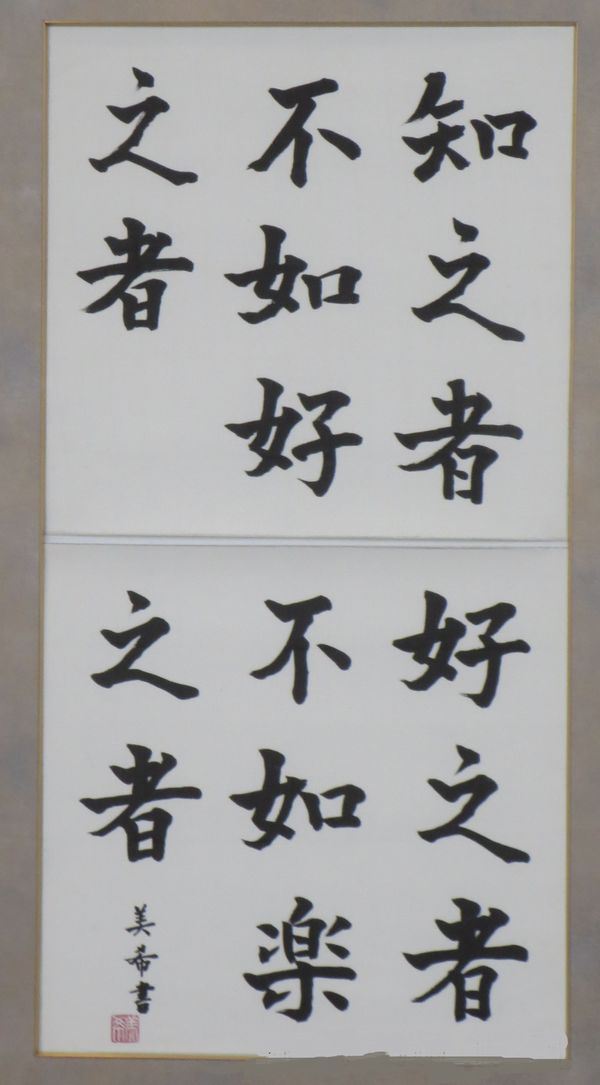 知之者
不如好
之者
好之者
不如楽
之者
美希書